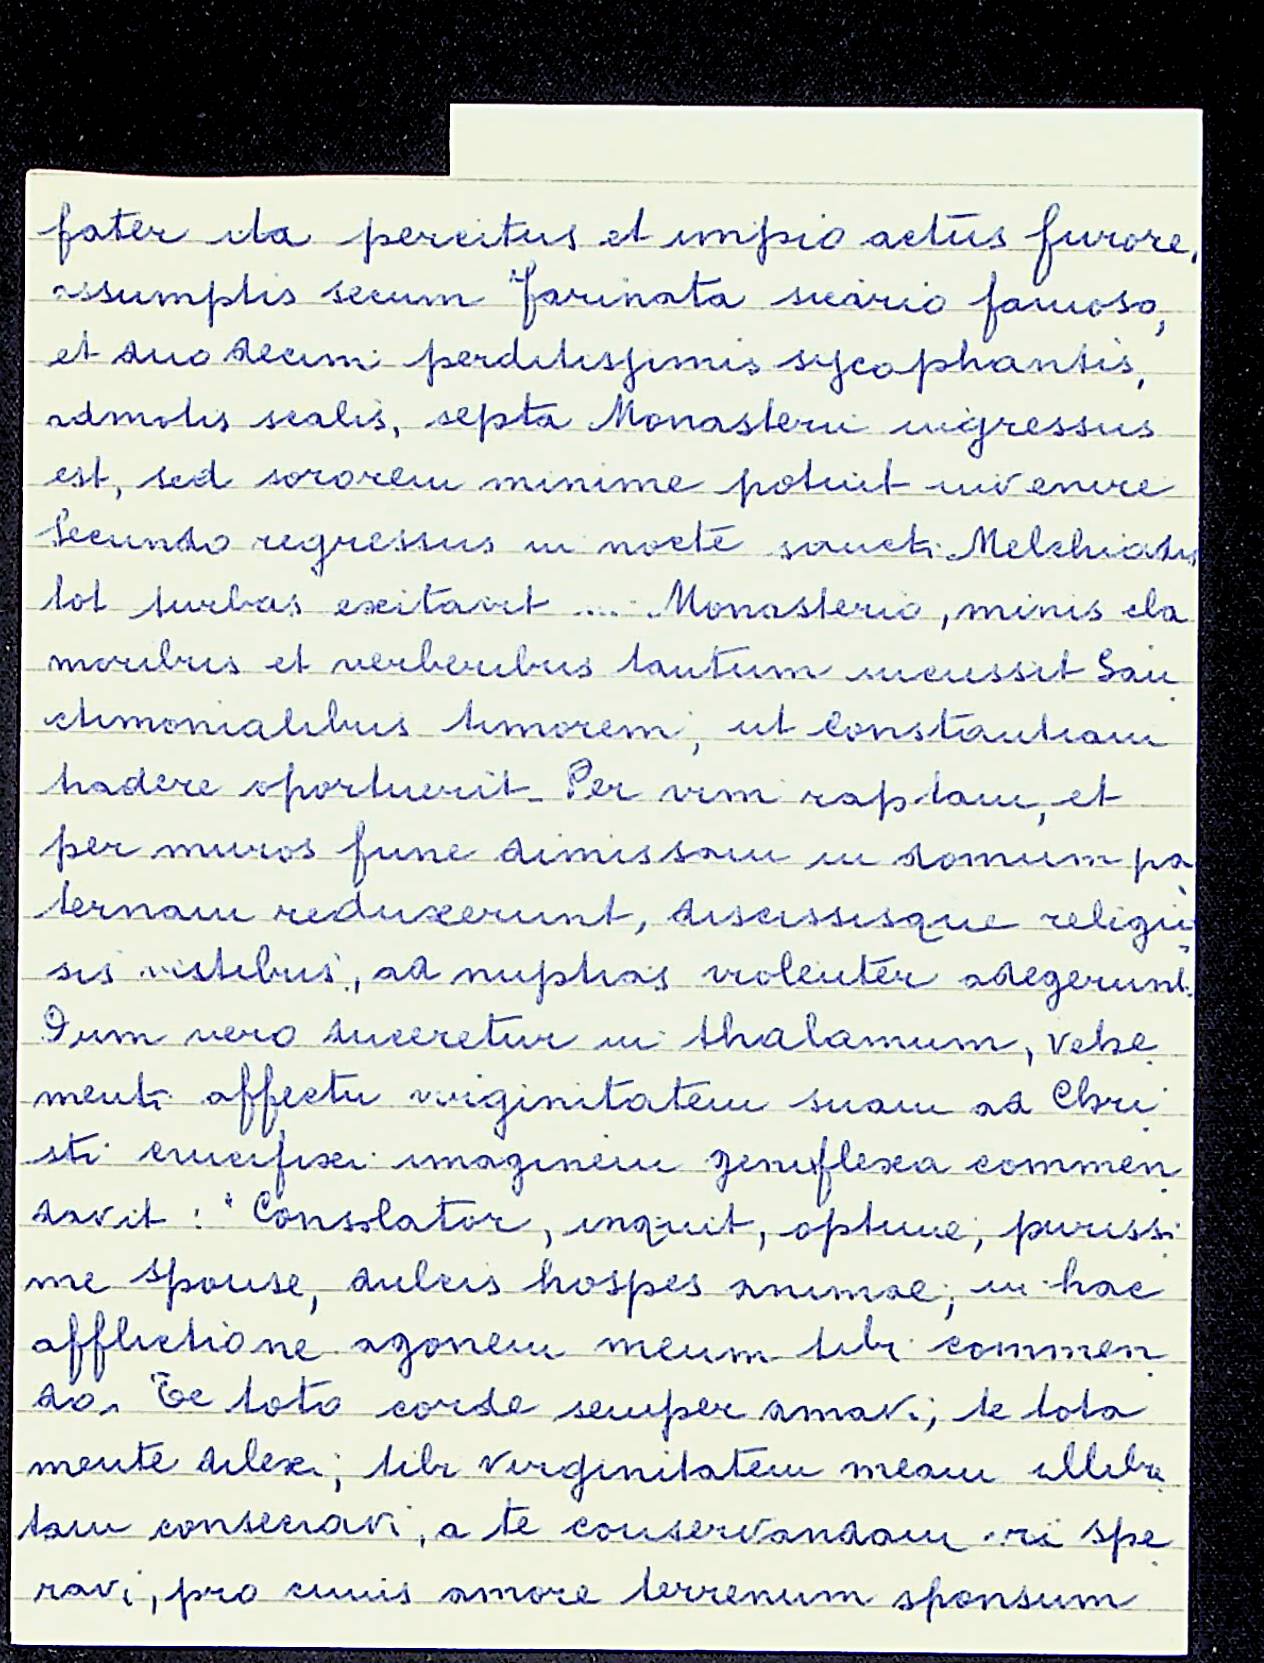 frater ita percitus et impio actus furore,
assumptis secum Farinata sicario famoso,
et duodecim perditissimis sycophantis,
admotis scalis, septa Monasterii ingressus
est, sed sororem minime potuit invenire
Secundo regressus in nocte sancti Melchiadis
tot turbas exitavit .... Monasterio, minis cla
moribus et verberibus tantum incussit San
ctimonialibus timorem, ut Constantiam
tradere oportuerit. Per vim raptam, et
per muros fune dimissam in domum pa
ternam reduxerunt, discissisque religio
sis vestibus, ad nuptias violenter adegerunt.
Dum vero duceretur in thalamum, vehe
menti affectu virginitatem suam ad Chri
sti crucifixi imaginem genuflexa commen
davit : "Consolator, inquit, optime, purissi
me Sponse, dulcis hospes animae, in hac
afflictione agonem meum tibi commen
do. Te toto corde semper amavi; te tota
mente dilexi; tibi virginitatem meam illiba
tam consecravi, a te conservandam spe
ravi, pro cuius amore terrenum sponsum